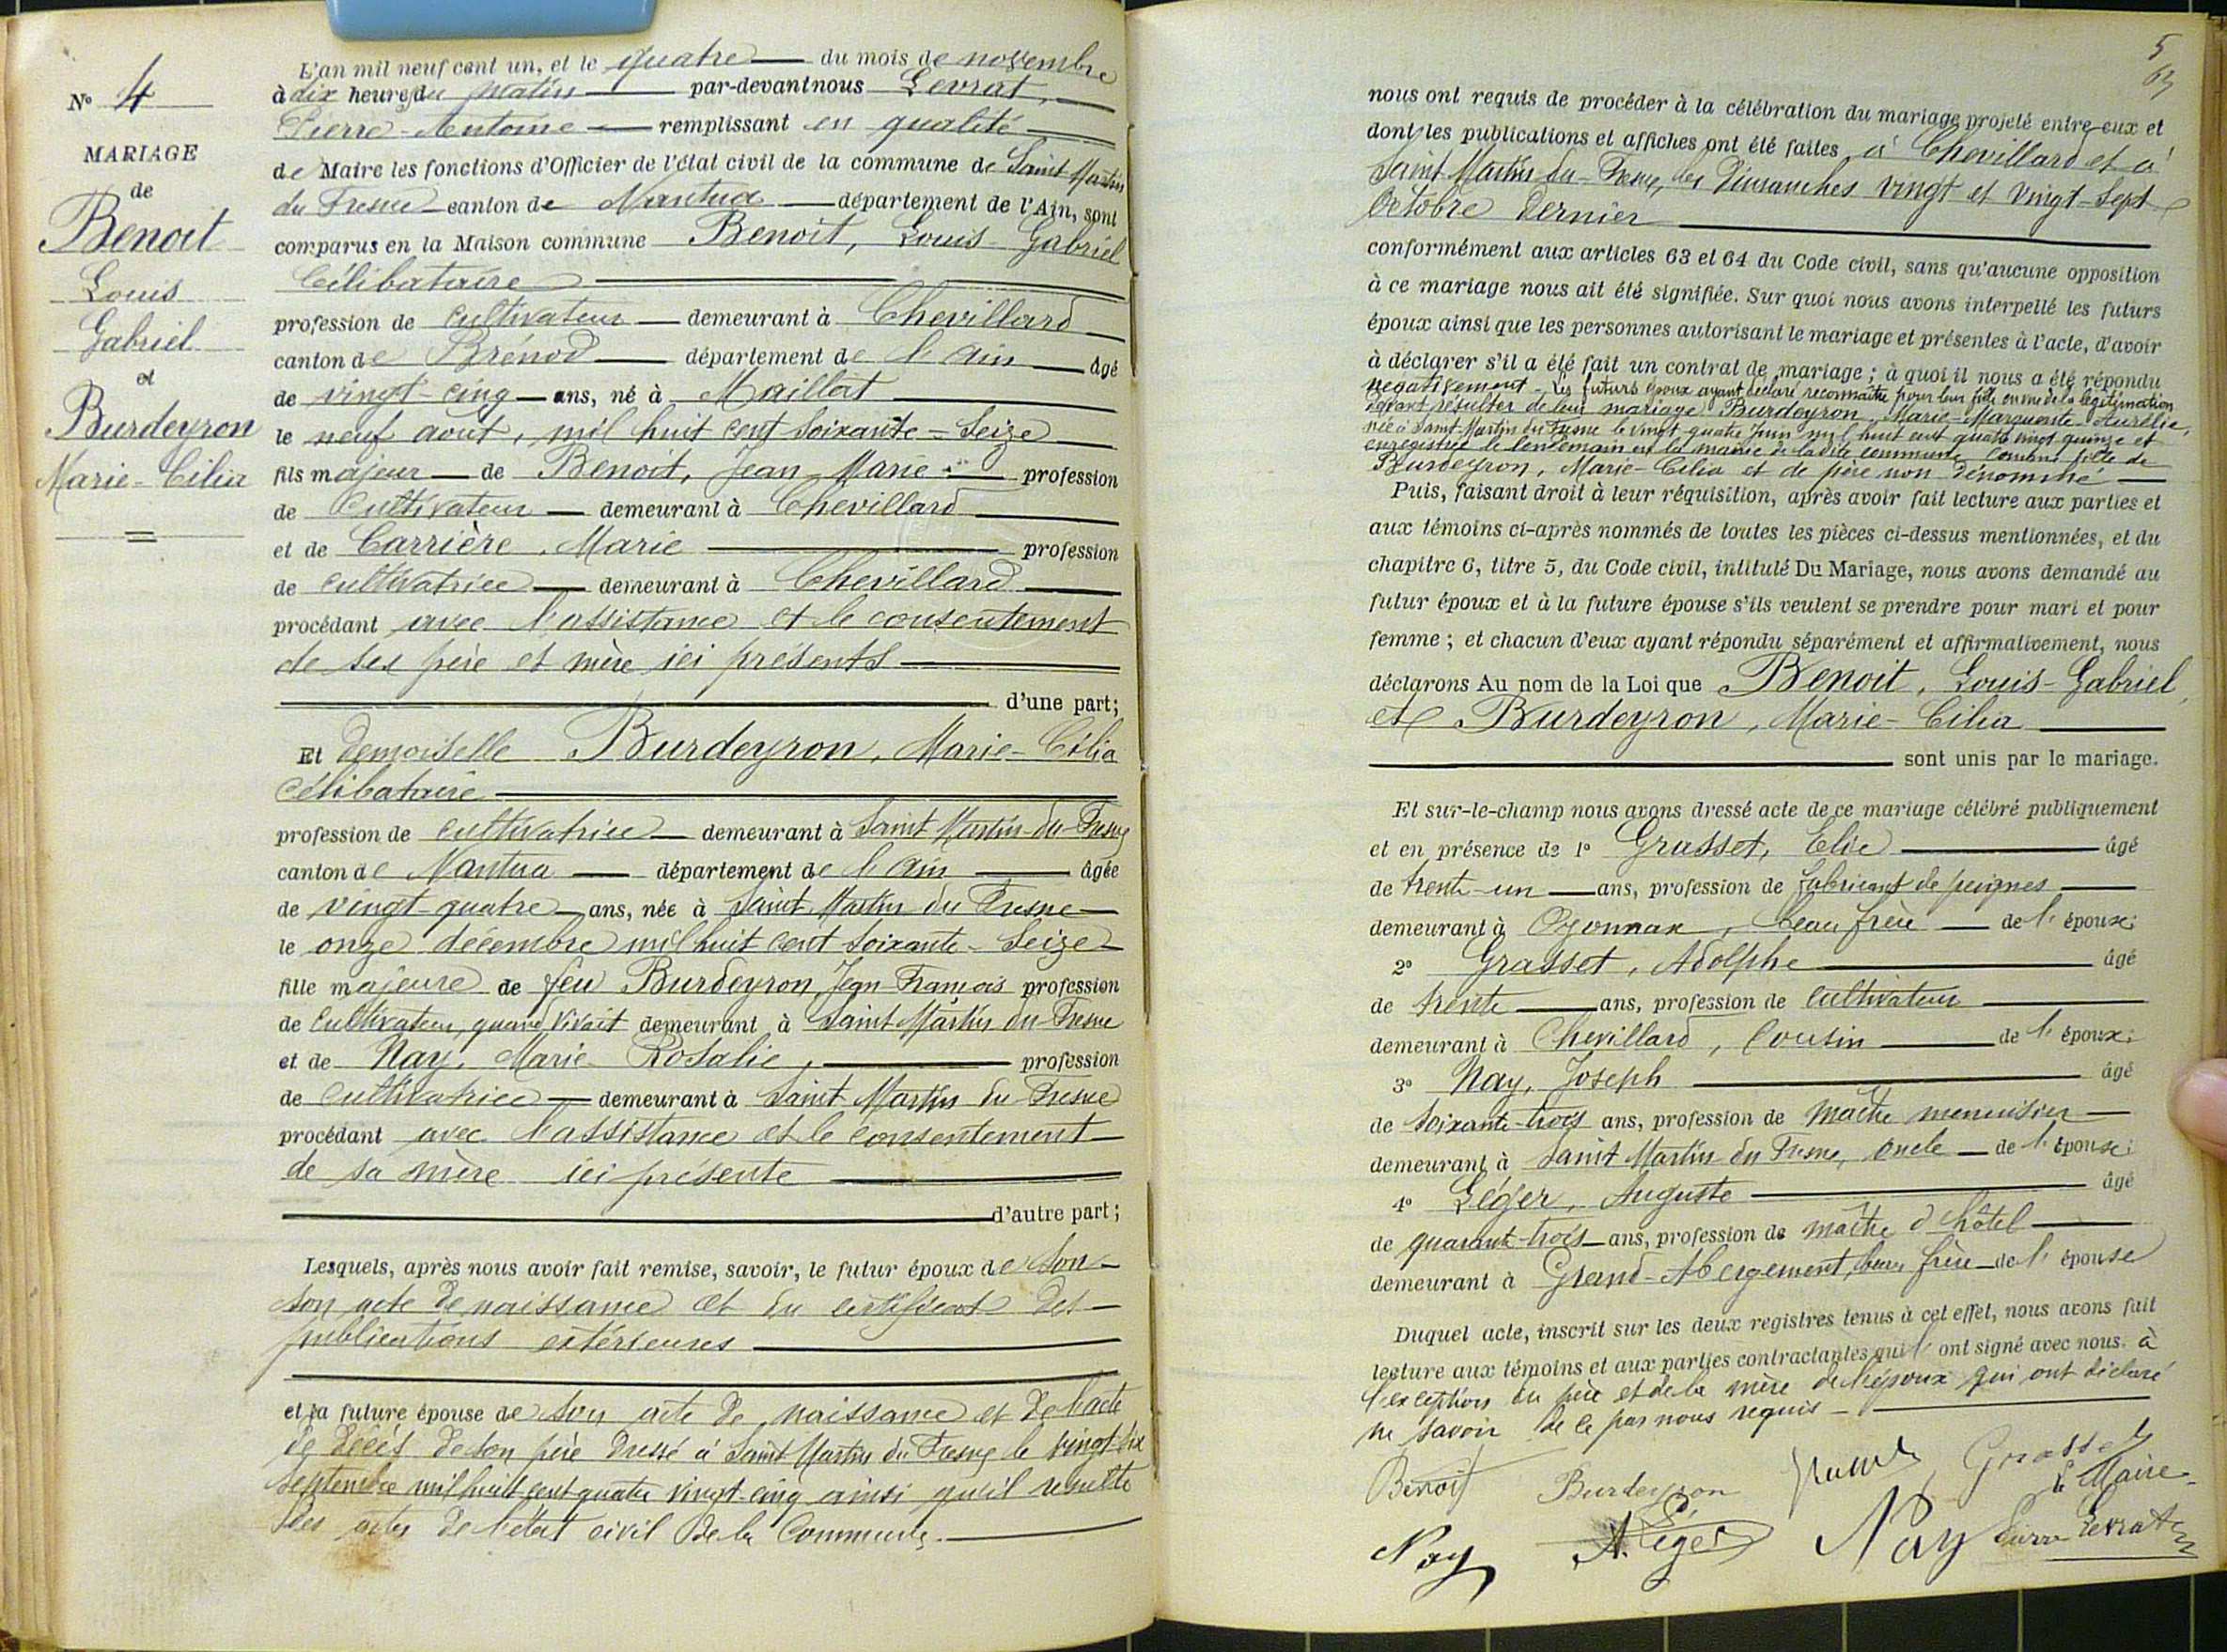 N° 4
MARIAGE
de
Benoit
Louis
Gabriel
et
Burdeyron
Marie-Célia
L'an mil neuf cent un, et le quatre du mois de novembre
à dix heures du matin par-devant nous Levrat,
Pierre-Antoine remplissant en qualité
de Maire les fonctions d'Officier de l'état civil de la commune de Saint Martin
du Fresne canton de Nantua département de l'Ain, sont
comparus en la Maison commune Benoit, Louis-Gabriel
Célibataire
profession de cultivateur demeurant à Chevillard
canton de Brénod département de l'Ain âgé
de vingt-cinq ans, né à Maillat
le neuf août, mil huit cent soixante-seize
fils majeur de Benoit, Jean Marie profession
de Cultivateur demeurant à Chevillard
et de Carrière, Marie profession
de cultivatrice demeurant à Chevillard
procédant avec l'assistance et le consentement
de ses père et mère ici présents
d'une part;
Et demoiselle Burdeyron, Marie-Célia
Célibataire
profession de cultivatrice demeurant à Saint Martin-du-Fresne
canton de Nantua département de l'Ain âgée
de vingt-quatre ans, née à Saint Martin du Fresne
le onze décembre mil huit cent soixante-seize
fille majeure de feu Burdeyron, Jean François profession
de Cultivateur, quand vivait demeurant à Saint Martin du Fresne
et de Nay, Marie-Rosalie, profession
de cultivatrice demeurant à Saint Martin du Fresne
procédant avec l'assistance et le consentement
de sa mère ici présente
d'autre part;
Lesquels, après nous avoir fait remise, savoir, le futur époux de son
son acte de naissance et du certificat des
publications extérieures
et la future épouse de son acte de naissance et de l'acte
de décès de son père dressé à Saint Martin du Fresne le vingt-six
septembre mil huit cent quatre vingt-cinq ainsi qu'il résulte
des actes de l'état civil de la Commune.
5
63
nous ont requis de procéder à la célébration du mariage projeté entre eux et
dont les publications et affiches ont été faites à Chevillard et à
Saint Martin-du-Fresne, les Dimanches vingt et vingt-sept
Octobre dernier
conformément aux articles 63 et 64 du Code civil, sans qu'aucune opposition
à ce mariage nous ait été signifiée. Sur quoi nous avons interpellé les futurs
époux ainsi que les personnes autorisant le mariage et présentes à l'acte, d'avoir
à déclarer s'il a été fait un contrat de mariage; à quoi il nous a été répondu
négativement - Les futurs époux ayant déclaré reconnaître pour leur fille en vue de la légitimation
devant résulter de leur mariage Burdeyron, Marie-Marguerite-Aurélie,
née à Saint-Martin du Fresne le vingt quatre Juin mil huit cent quatre vingt quinze et
enregistrée le lendemain en la mairie de la dite commune comme fille de
Burdeyron, Marie-Célia et de père non dénommé
Puis, faisant droit à leur réquisition, après avoir fait lecture aux parties et
aux témoins ci-après nommés de toutes les pièces ci-dessus mentionnées, et du
chapitre 6, titre 5, du Code civil, intitulé Du Mariage, nous avons demandé au
futur époux et à la future épouse s'ils veulent se prendre pour mari et pour
femme; et chacun d'eux ayant répondu séparément et affirmativement, nous
déclarons Au nom de la Loi que Benoit, Louis-Gabriel,
et Burdeyron, Marie-Célia
sont unis par le mariage.
Et sur-le-champ nous avons dressé acte de ce mariage célébré publiquement
et en présence de 1° Grasset, Elie âgé
de trente-un ans, profession de fabricant de peignes
demeurant à Oyonnax, beau frère de l'épouse;
2° Grasset, Adolphe âgé
de trente ans, profession de cultivateur
demeurant à Chevillard, Cousin de l'époux;
3° Nay, Joseph âgé
de soixante-trois ans, profession de maître menuisier
demeurant à Saint Martin du Fresne, oncle de l'épouse;
4° Léger, Auguste âgé
de quarante-trois ans, profession de maître d'hôtel
demeurant à Grand-Abergement, beau frère de l'épouse
Duquel acte, inscrit sur les deux registres tenus à cet effet, nous avons fait
lecture aux témoins et aux parties contractantes qui l'ont signé avec nous. à
l'exception du père et de la mère de l'époux qui ont déclaré
ne savoir de ce par nous requis
Benoit Burdeyron Grasset
Le Maire
Nay A. Léger Nay Pierre Levrat